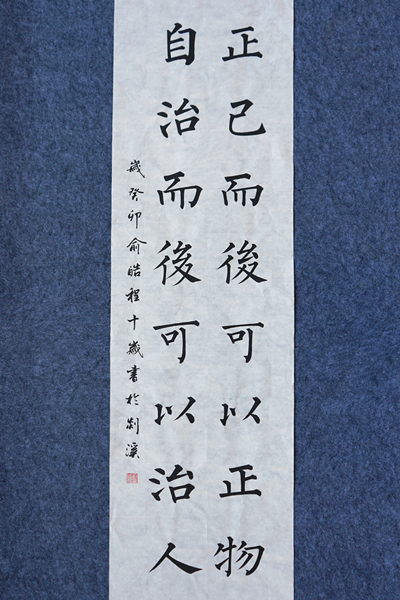 正己而後可以正物
自治而後可以治人
歲癸卯俞皓程十歲書於剡溪